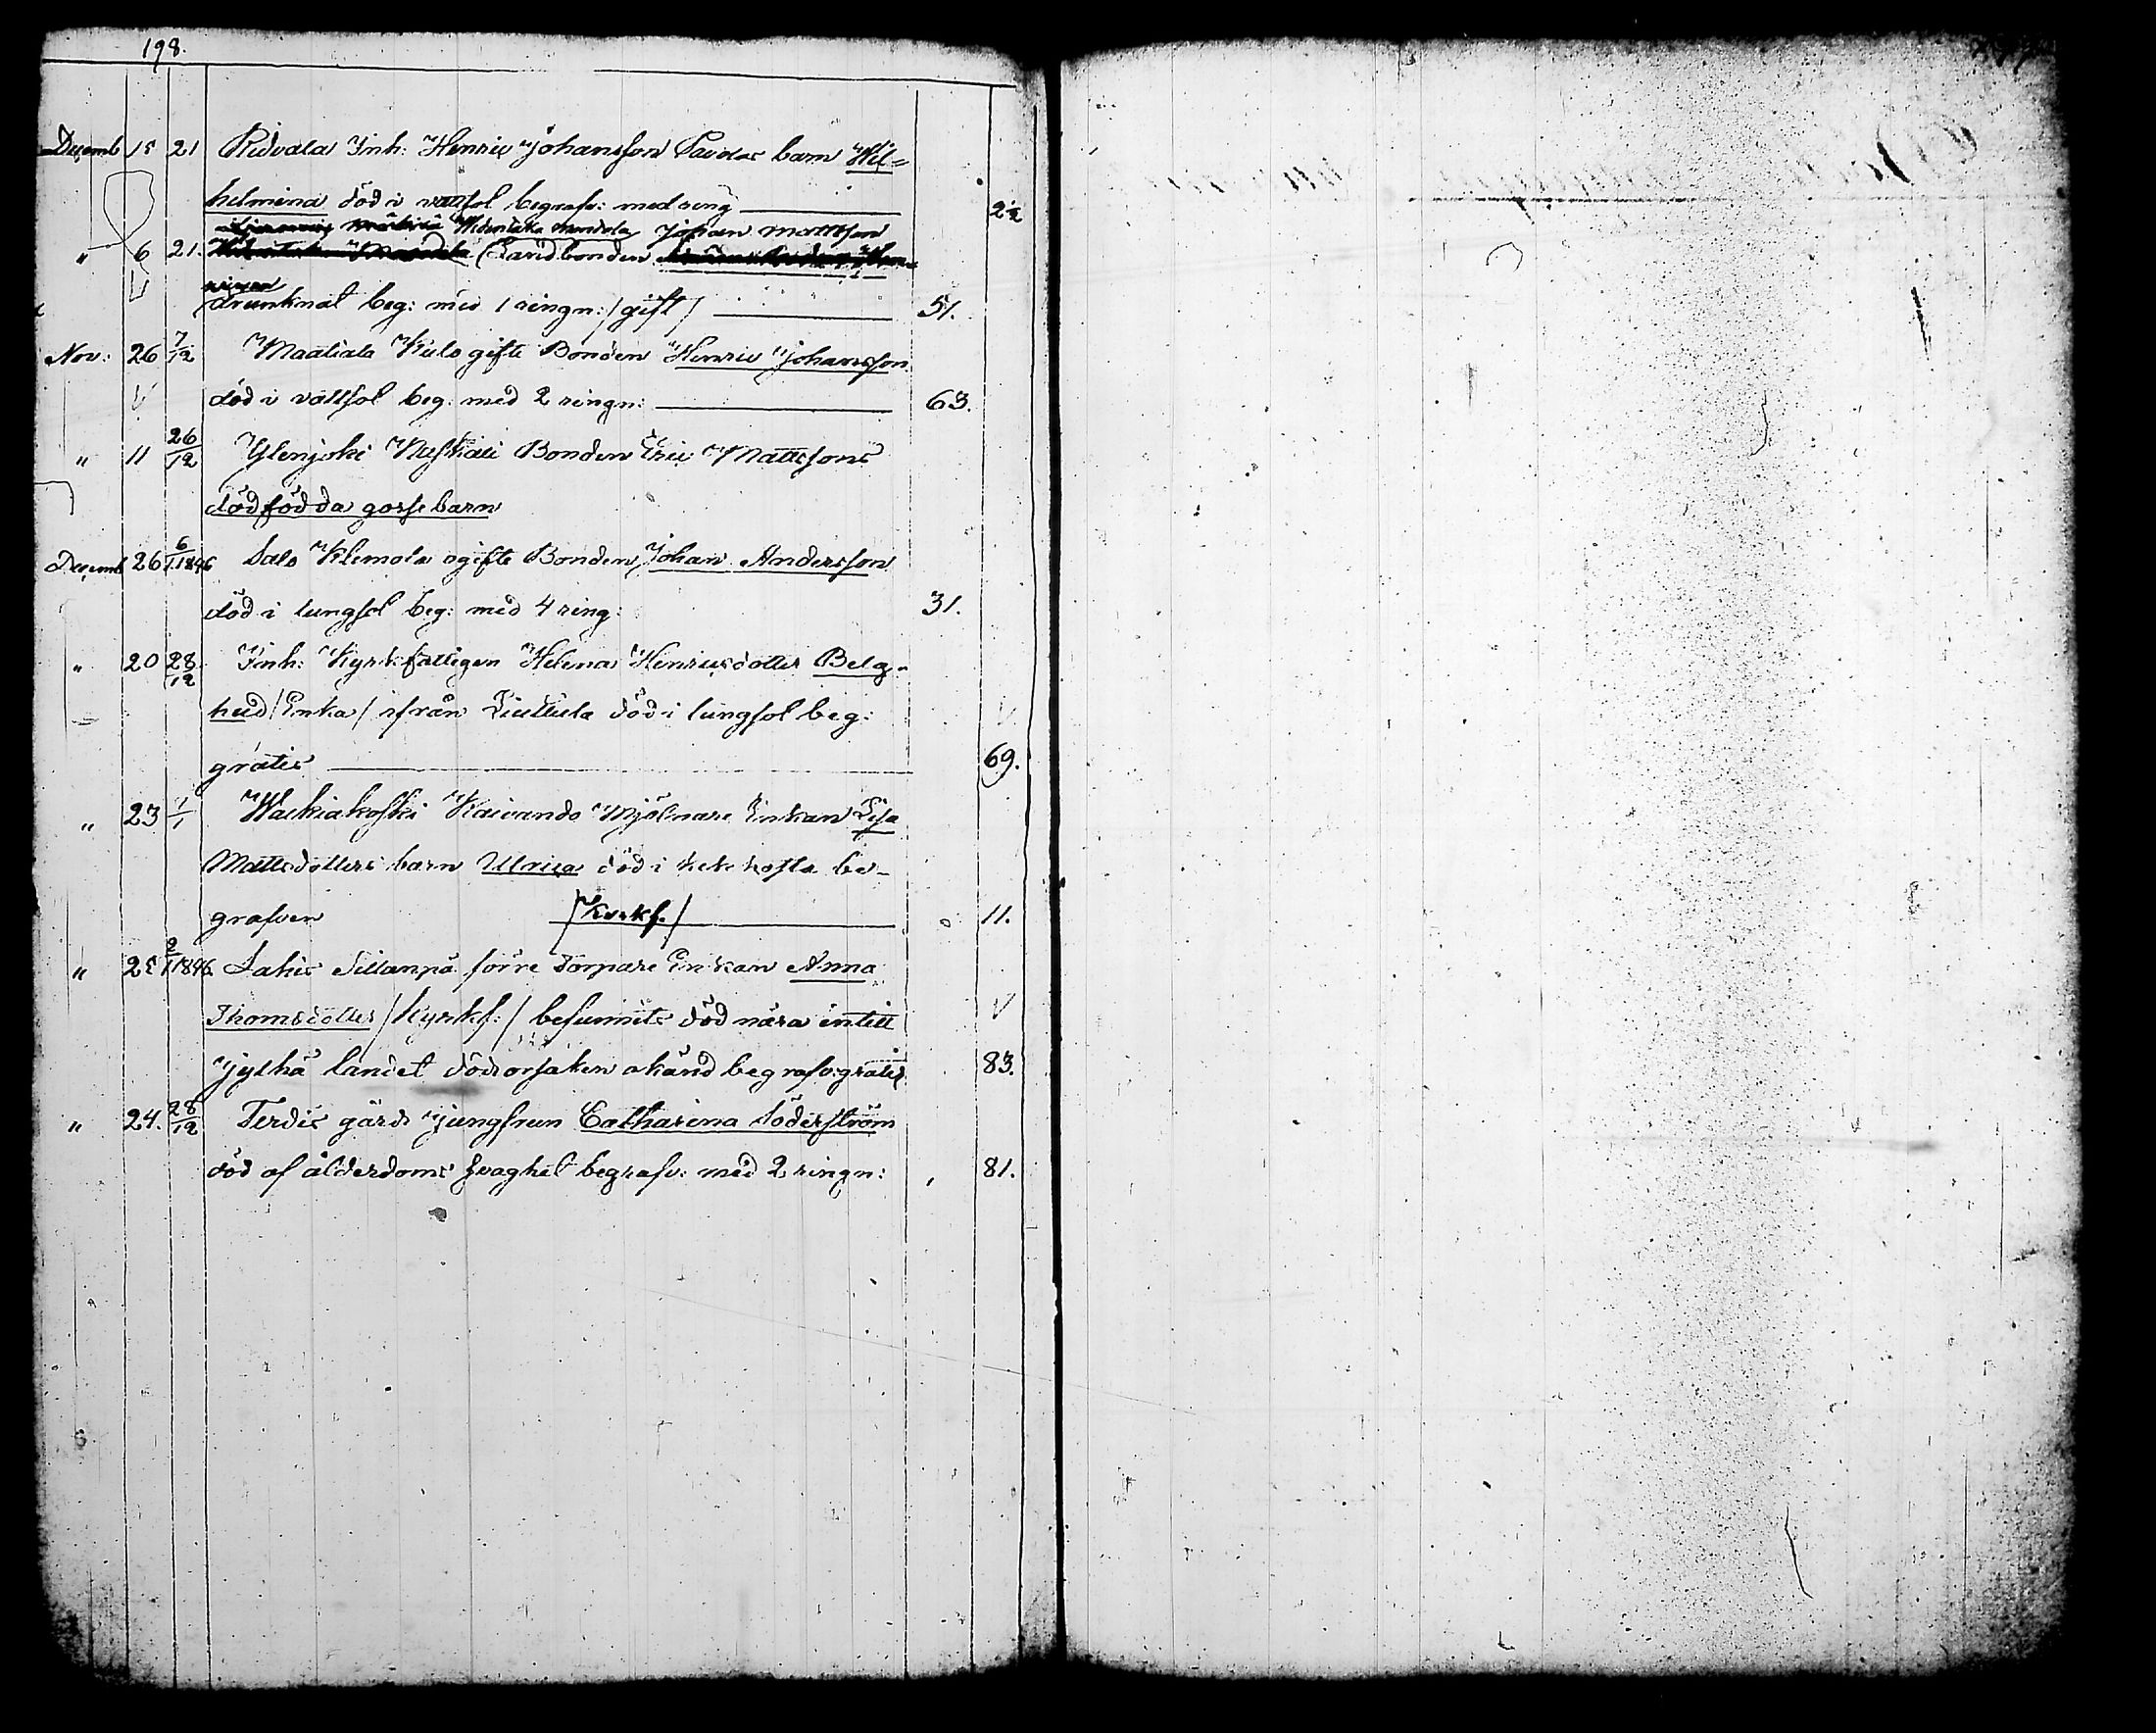 198.
Decemb 15 21 Ridvala Inh: Henric Johansson Pavolas barn Wil=
helmina död i vattsol begrafv: med ring 2½
Widentaka Johan Mattsson
" 6 21. Landbonden
drunknat beg: med 1 ringn: / gift / 51.
Nov: 26 7/12 Maatiala Kulo gifte Bonden Henric Johansson
död i vattsol beg: med 2 ringn: 63.
" 11 26/12 Ylenjoki Bonden Eric Mattssons
dödfödda gossebarn
Decemb 26 6/1 1846 Salo Klemola ogifte Bonden Johan Andersson
död i lungsot beg: med 4 ring: 31.
" 20 28/12 Inh: Kyrkfattigen Helena Henricsdotter Belg-
hud / Enka / ifrån Liuttula död i lungsot beg:
gratis 69.
" 23 1/1 Walkiakoski Kaivando Mjölnare Enkan Lisa
Mattsdotters barn Ulrica död i kikhosta be-
grafven / Kyrkf. / 11.
" 25 2/1 1846. Lahis Sillanpä förre Torpare Enkan Anna
Thomsdotter / Kyrkf: / befunnits död nära intill
Jylhä landet dödsorsaken okänd begrafv: gratis 83.
" 24. 28/12 Terdis gårds Jungfrun Catharina Söderström
död af ålderdoms svaghet begrafv: med 2 ringn: 81.